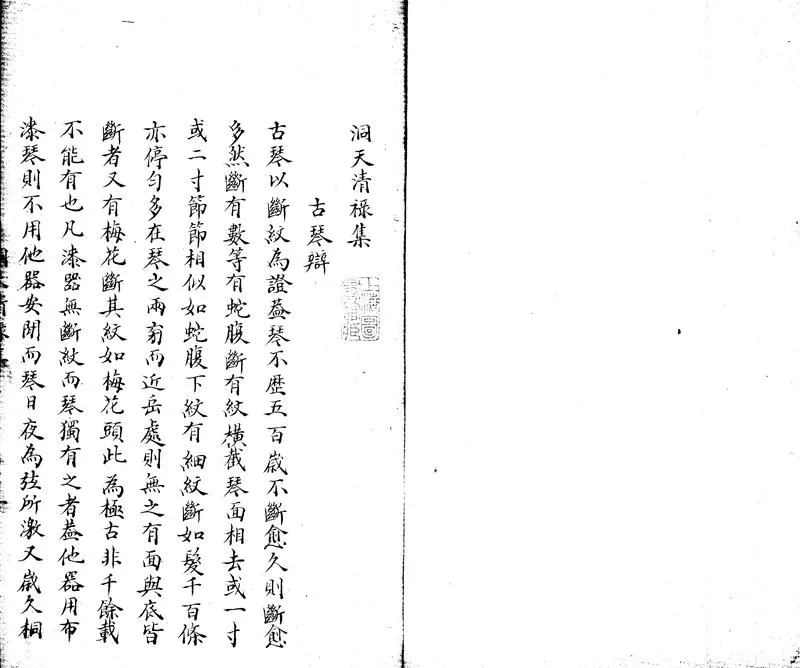 洞天清祿集
古琴辯
古琴以斷紋為證葢琴不歴五百嵗不斷愈久則斷愈
多然斷有數等有蛇腹斷有紋橫截琴面相去或一寸
或二寸節節相似如蛇腹下紋有細紋斷如髮千百條
亦停勻多在琴之兩旁而近岳處則無之有面與底皆
斷者又有梅花斷其紋如梅花頭此為極古非千餘載
不能有也凡漆器無斷紋而琴獨有之者葢他器用布
漆琴則不用他器安閑而琴日夜為弦所激又嵗久桐